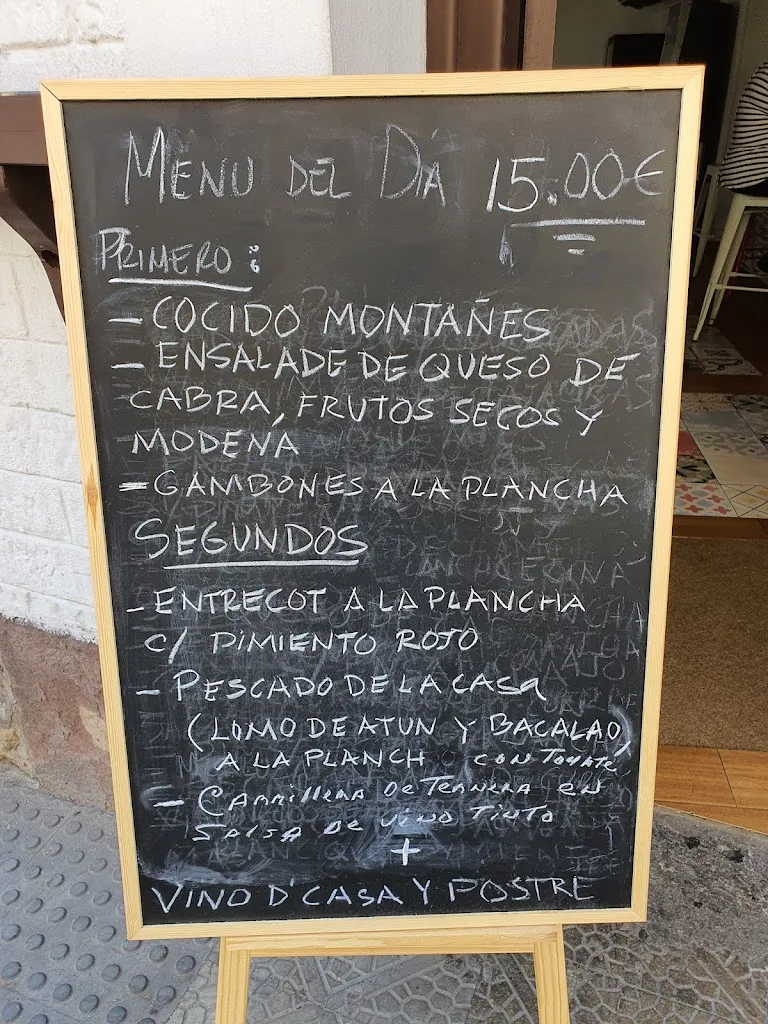 MENU DEL DIA 15.00€
PRIMERO:
- COCIDO MONTAÑES
- ENSALADE DE QUESO DE
CABRA, FRUTOS SECOS Y
MODENA
- GAMBONES A LA PLANCHA
SEGUNDOS
- ENTRECOT A LA PLANCHA
C/ PIMIENTO ROJO
- PESCADO DE LA CASA
(LOMO DE ATUN Y BACALAO)
A LA PLANCH CON TOMATE
- CARRILLERA DE TERNERA EN
SALSA DE VINO TINTO
+
VINO D'CASA Y POSTRE